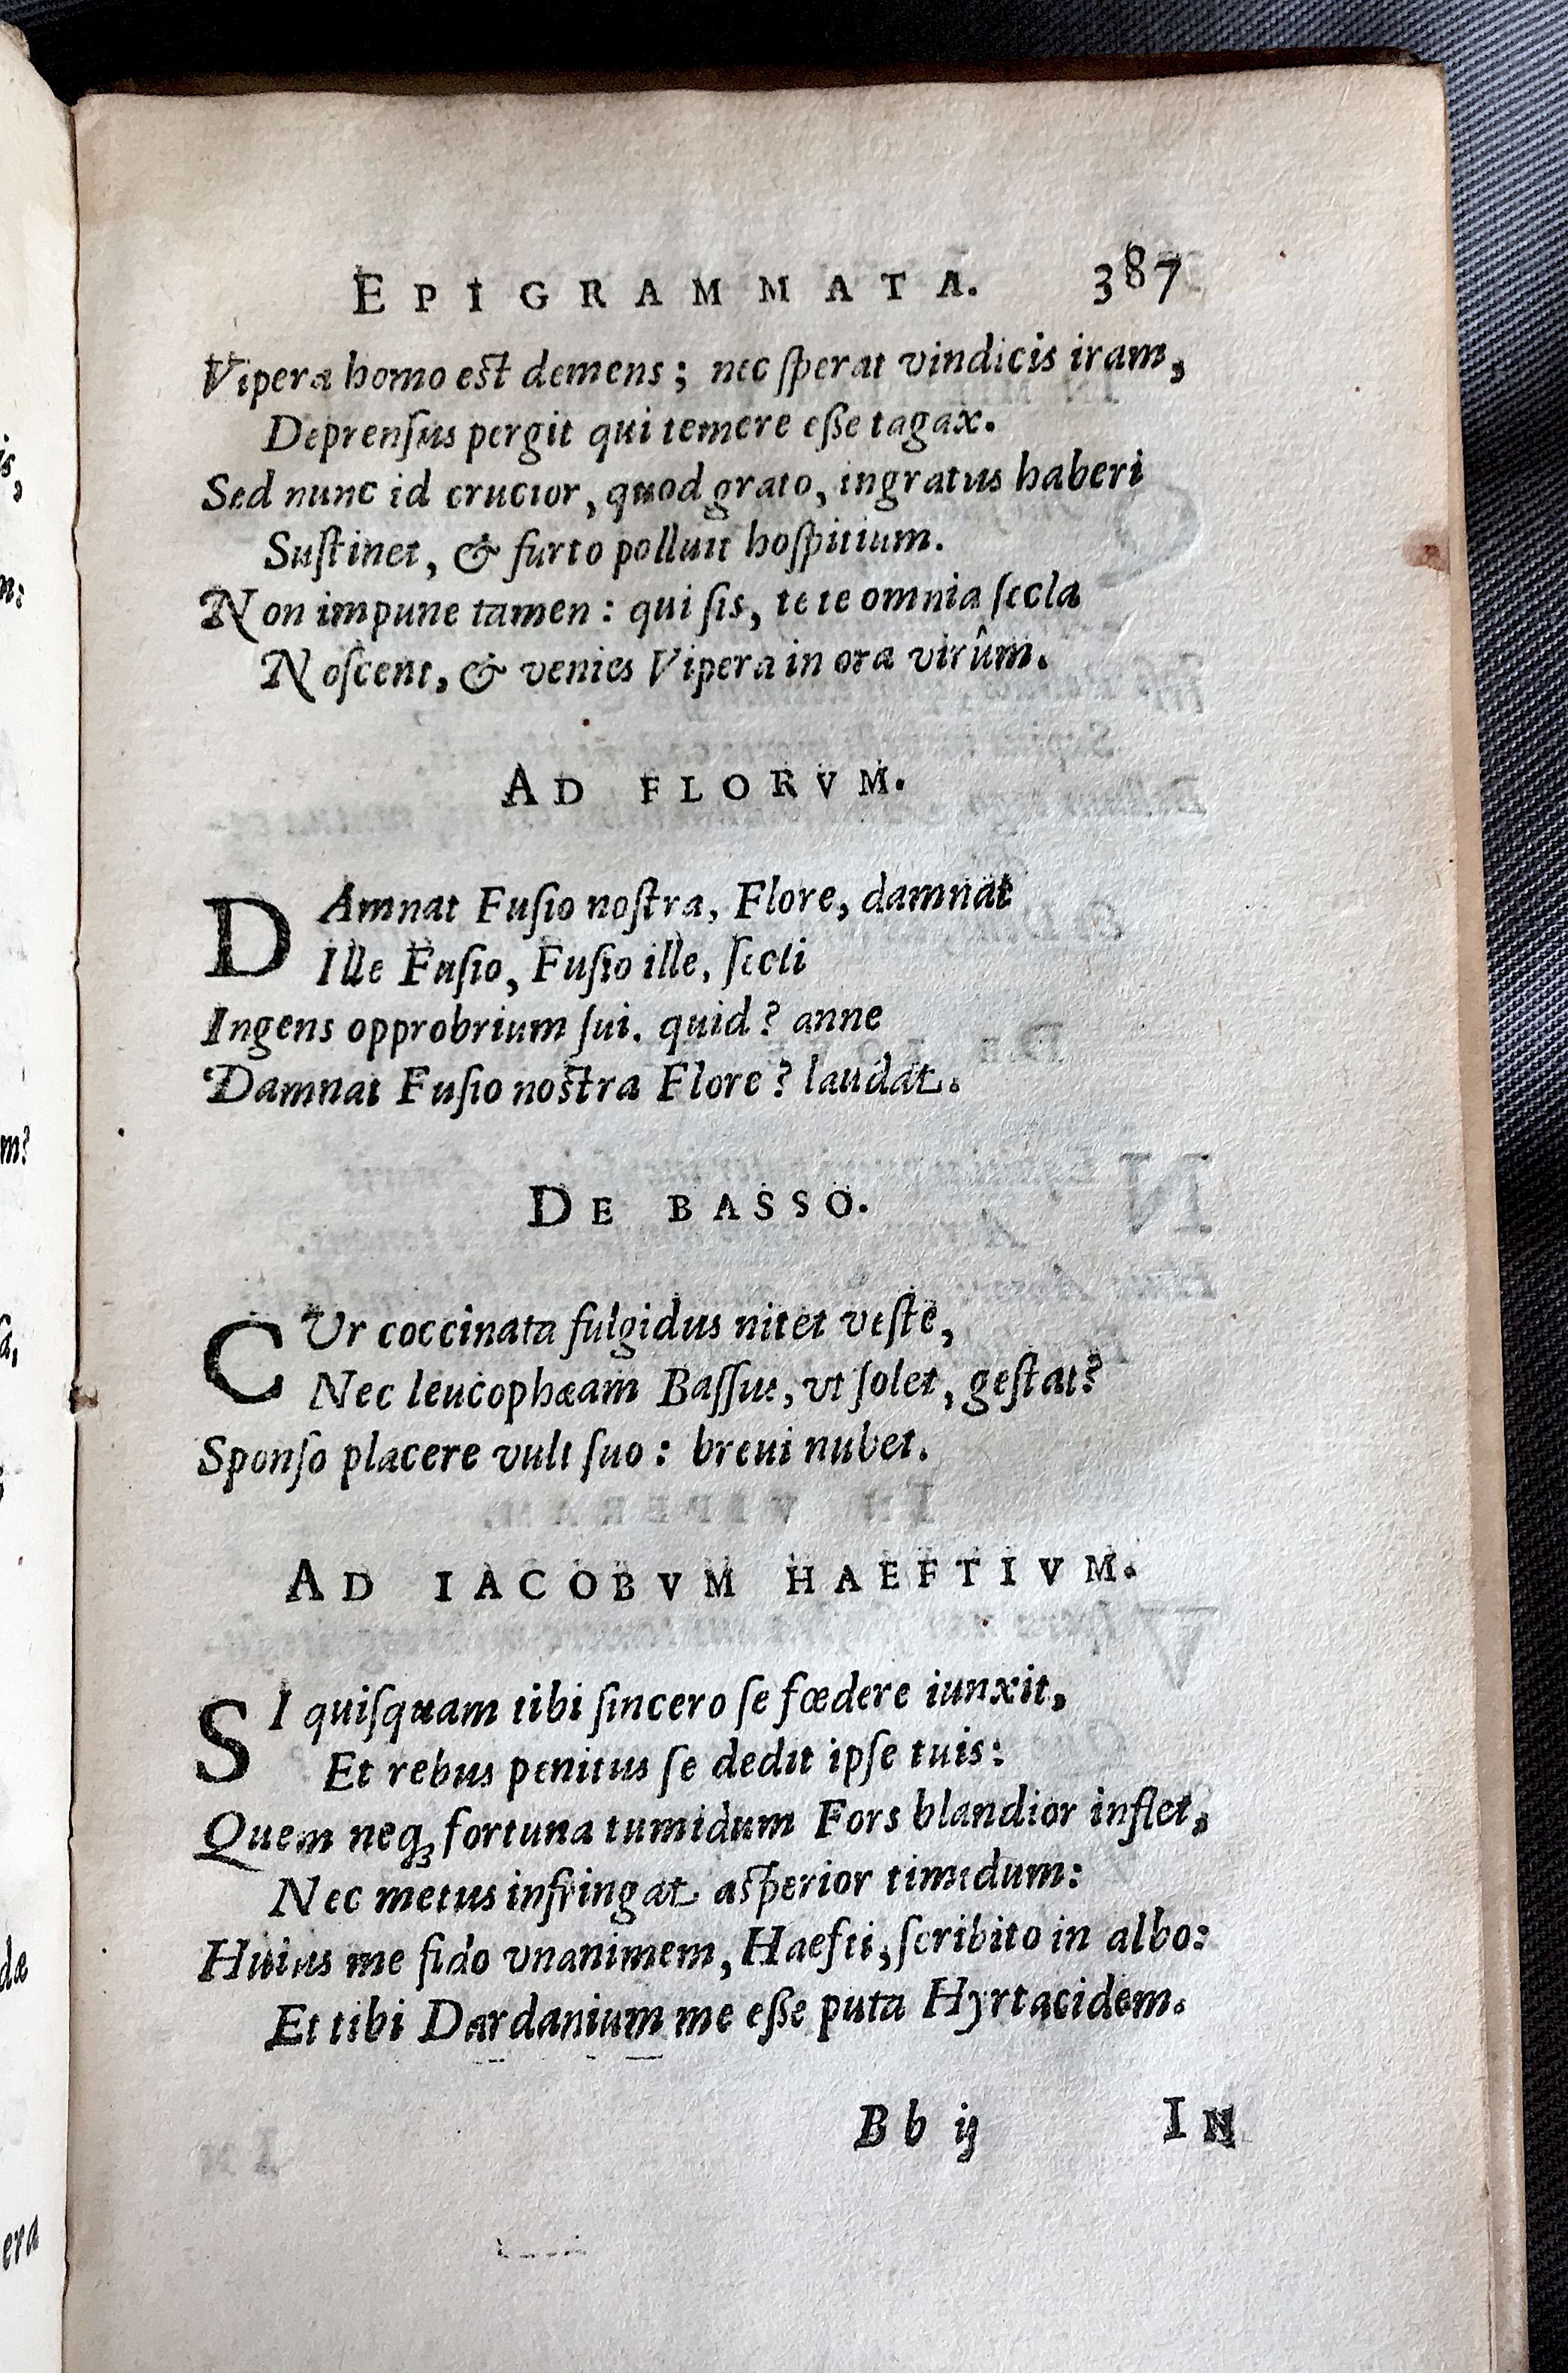 EPIGRAMMATA. 387
Vipera homo est demens; nec ſperat vindicis iram,
Deprenſus pergit qui temere eſſe tagax.
Sed nunc id crucior, quod grato, ingratus haberi
Suſtinet, & furto polluit hoſpitium.
Non impune tamen: qui ſis, te te omnia ſecla
Noſcent, & venies Vipera in ora virûm.
AD FLORVM.
DAmnat Fuſio noſtra, Flore, damnat
Ille Fuſio, Fuſio ille, ſecli
Ingens opprobrium ſui. quid? anne
Damnat Fuſio nostra Flore? laudat.
DE BASSO.
CUr coccinata fulgidus nitet veſte,
Nec leucophæam Baſſus, vt ſolet, geſtat?
Sponſo placere vult ſuo: breui nubet.
AD IACOBVM HAEFTIVM.
SI quiſquam tibi ſincero ſe fœdere iunxit,
Et rebus penitus ſe dedit ipſe tuis:
Quem neq; fortuna tumidum Fors blandior inflet,
Nec metus infringat asperior timidum:
Huius me fido vnanimem, Haefti, ſcribito in albo:
Et tibi Dardanium me eſſe puta Hyrtacidem.
Bb ij IN